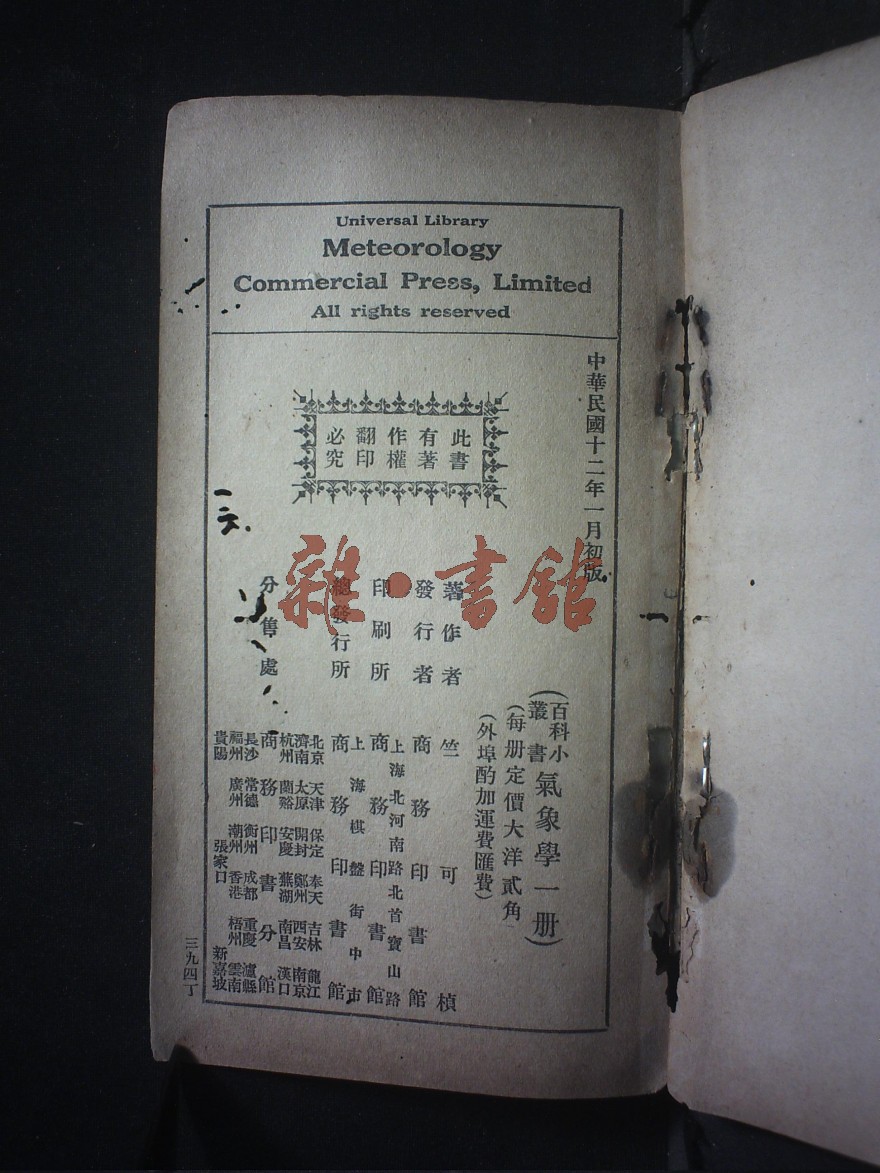 Universal Library
Meteorology
Commercial Press, Limited
All rights reserved
中華民國十二年一月初版
此書
有著
作權
翻印
必究
(百科小叢書氣象學一册)
(每册定價大洋貳角
(外埠酌加運費匯費)
著作者 竺可楨
發行者 商務印書館
上海北河南路北首寶山路
印刷所 商務印書館
上海棋盤街中市
總發行所 商務印書館
北京 天津 保定 奉天 吉林 龍江
濟南 太原 開封 鄭州 西安 南京
杭州 蘭谿 安慶 蕪湖 南昌 漢口
分售處 商務印書分館
長沙 常德 衡州 成都 重慶 瀘縣
福州 廣州 潮州 香港 梧州 雲南
貴陽 張家口 新嘉坡
三九四丁
雜·書館